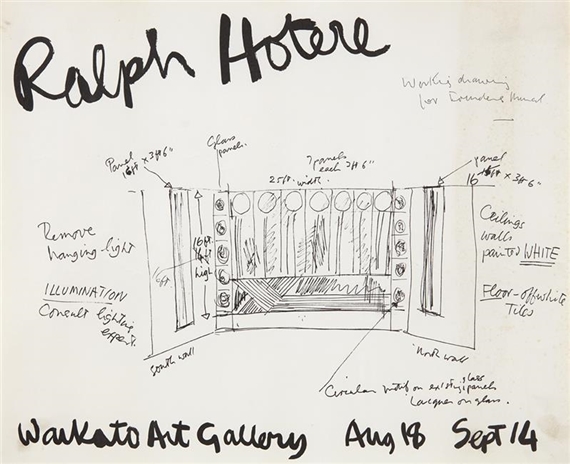 Ralph Hotere
Working drawing
for Founders Mural
Glass
panel.
Panel
16ft × 3ft 6"
7 panels
each 3ft 6"
25ft. width.
panel
16 × 3ft 6"
Remove
hanging-light
16ft
high
Ceilings
walls
painted WHITE
ILLUMINATION
Consult lighting
expert.
Floor-offwhite
Tiles
South wall
North wall
Circular motif on existing glass panels
Lacquer on glass.
Waikato Art Gallery Aug 18 Sept 14